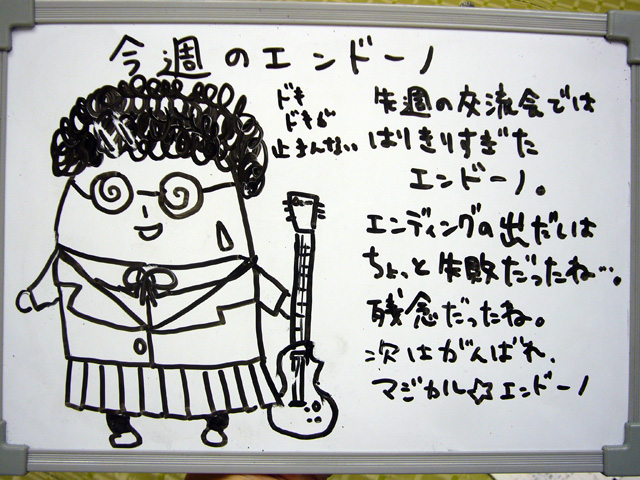 今週のエンドーノ
ドキ
ドキが
止まんない
先週の交流会では
はりきりすぎた
エンドーノ。
エンディングの出だしは
ちょっと失敗だったね…。
残念だったね。
次はがんばれ、
マジカル☆エンドーノ